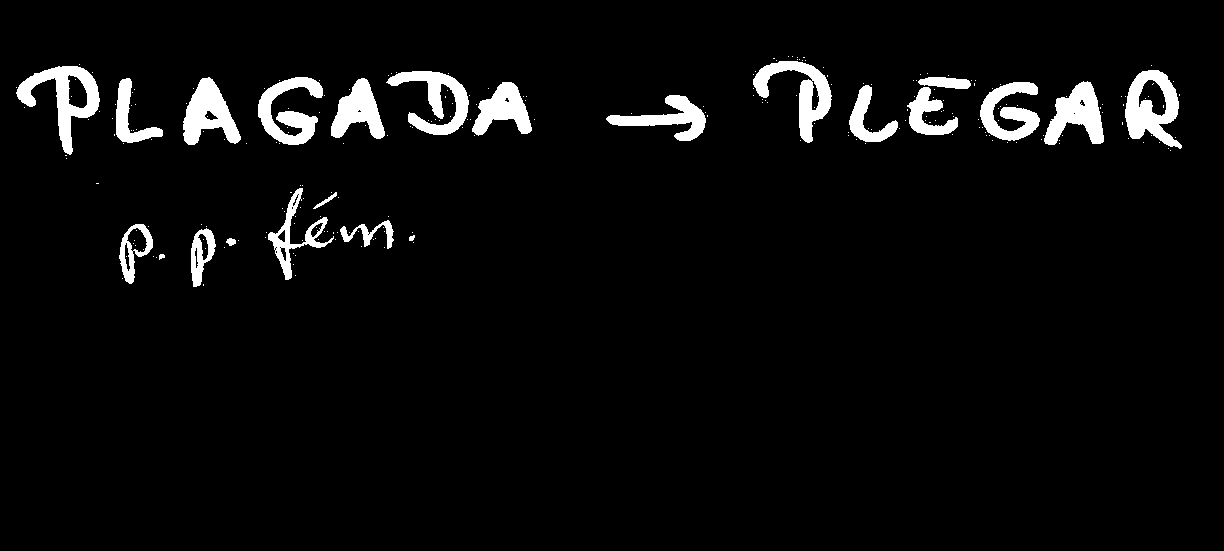 PLAGADA → PLEGAR
p. p. fém.